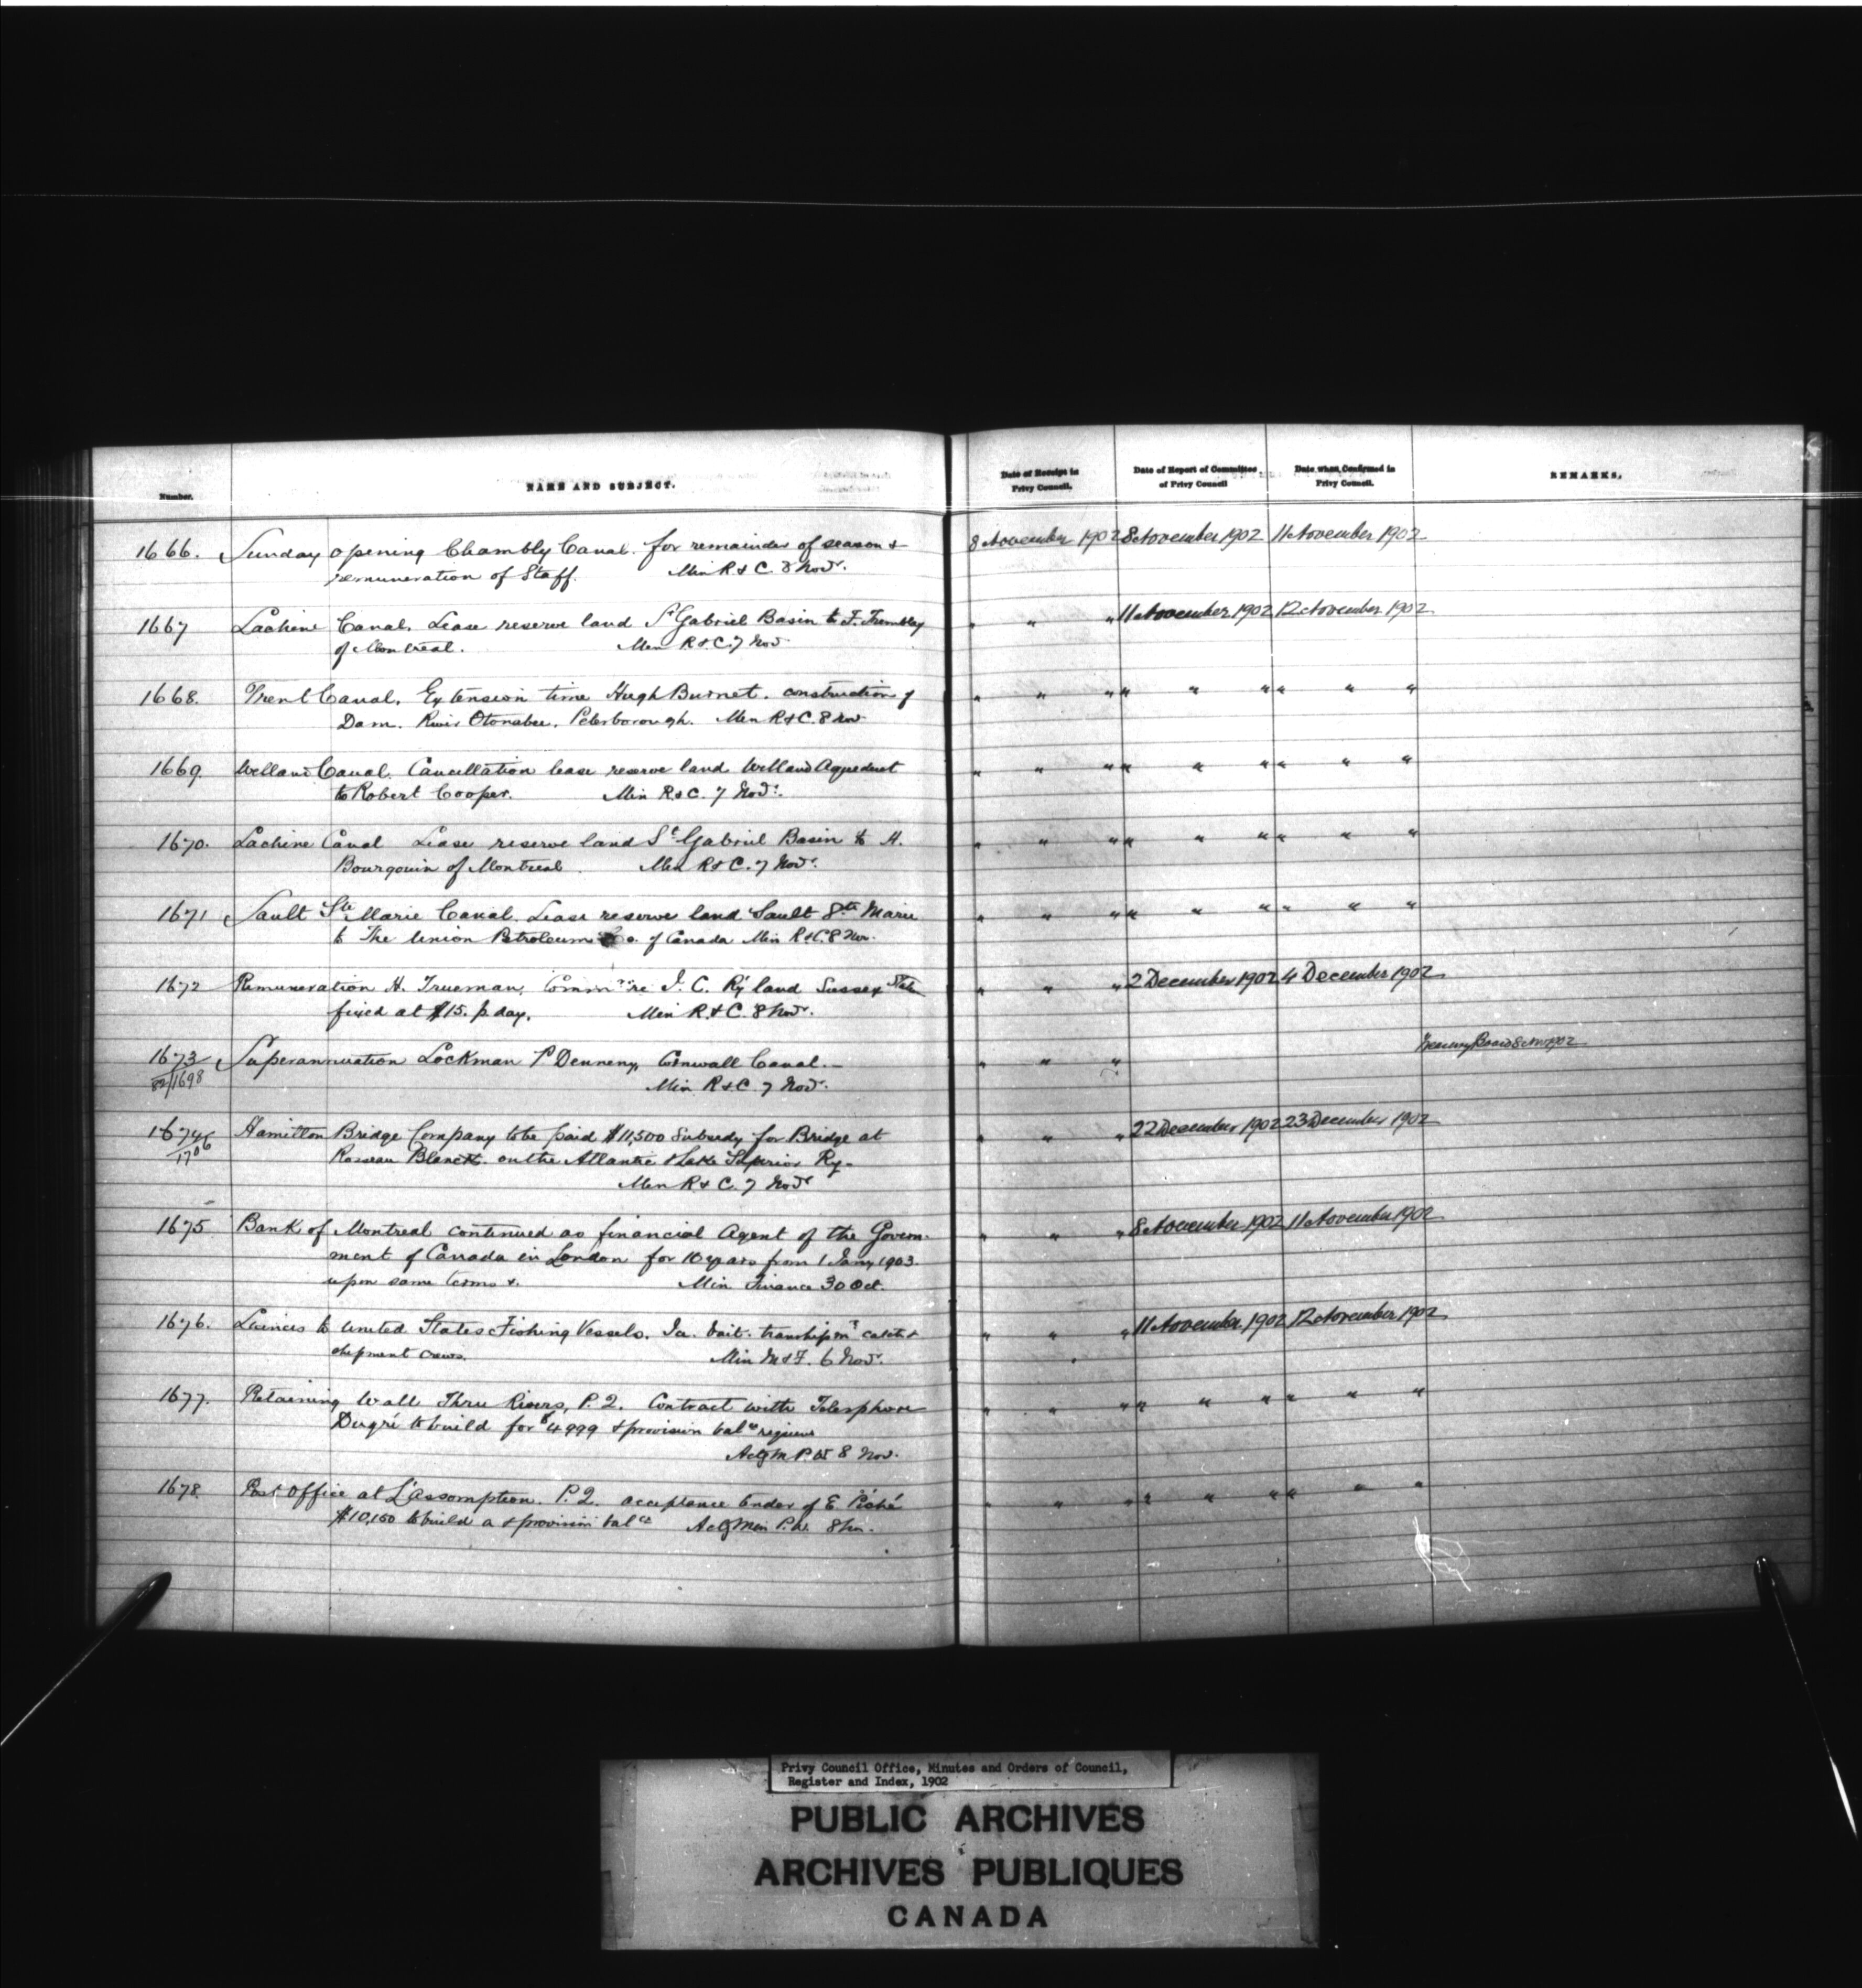 Number.
NAME AND SUBJECT.
Date of Receipt in Privy Council.
Date of Report of Committee of Privy Council
Date when Confirmed in Privy Council.
REMARKS.
1666. Sunday opening Chambly Canal. for remainder of season & 8 November 1902 8 November 1902 11 November 1902
remuneration of Staff. Min R & C. 8 Nov.
1667 Lachine Canal. Lease reserve land St Gabriel Basin to F. Trembley " " " 11 November 1902 12 November 1902
of Montreal. Min R & C. 7 Nov
1668. Trent Canal. Extension time Hugh Burnet. construction of " " " " " " " " "
Dam. River Otonabee, Peterborough. Min R & C. 8 Nov
1669. Welland Canal. Cancellation lease reserve land Welland Aqueduct " " " " " " " " "
to Robert Cooper. Min R & C. 7 Nov.
1670. Lachine Canal Lease reserve land St Gabriel Basin to H. " " " " " " " " "
Bourgouin of Montreal. Min R & C. 7 Nov.
1671 Sault Ste Marie Canal. Lease reserve land Sault Ste Marie " " " " " " " " "
to The Union Petroleum Co. of Canada Min R & C. 8 Nov.
1672 Remuneration H. Trueman, Commr re I. C. Ry land Sussex " " " 2 December 1902 4 December 1902
fixed at $15. p day. Min R. & C. 8 Nov.
1673 Superannuation Lockman P Denneny, Cornwall Canal.— " " " Treasury Board 8 Nov 1902
82/1698 Min R & C. 7 Nov.
1674 Hamilton Bridge Company to be paid $11,500 Subsidy for Bridge at " " " 22 December 1902 23 December 1902
1706 on the Atlantic & Lake Superior Ry-
Min R & C. 7 Nov
1675 Bank of Montreal continued as financial Agent of the Govern- " " " 8 November 1902 11 November 1902
ment of Canada in London for 10 years from 1 Jany 1903.
upon same terms &. Min Finance 30 Oct.
1676. Licences to United States Fishing Vessels. Ice. bait. transhipmt catch & " " " 11 November 1902 12 November 1902
shipment crews. Min M & F. 6 Nov.
1677. Retaining Wall Three Rivers, P.Q. Contract with Telesphore " " " " " " " " "
Dugré to build for $4999 & provision balce
Actg M P.W. 8 Nov.
1678. Post Office at L'Assomption. P.Q. acceptance tender of E Piché " " " " " " " " "
$10,150 to build a & provision balce Actg Min P.W. 8 Nov.
Privy Council Office, Minutes and Orders of Council,
Register and Index, 1902
PUBLIC ARCHIVES
ARCHIVES PUBLIQUES
CANADA